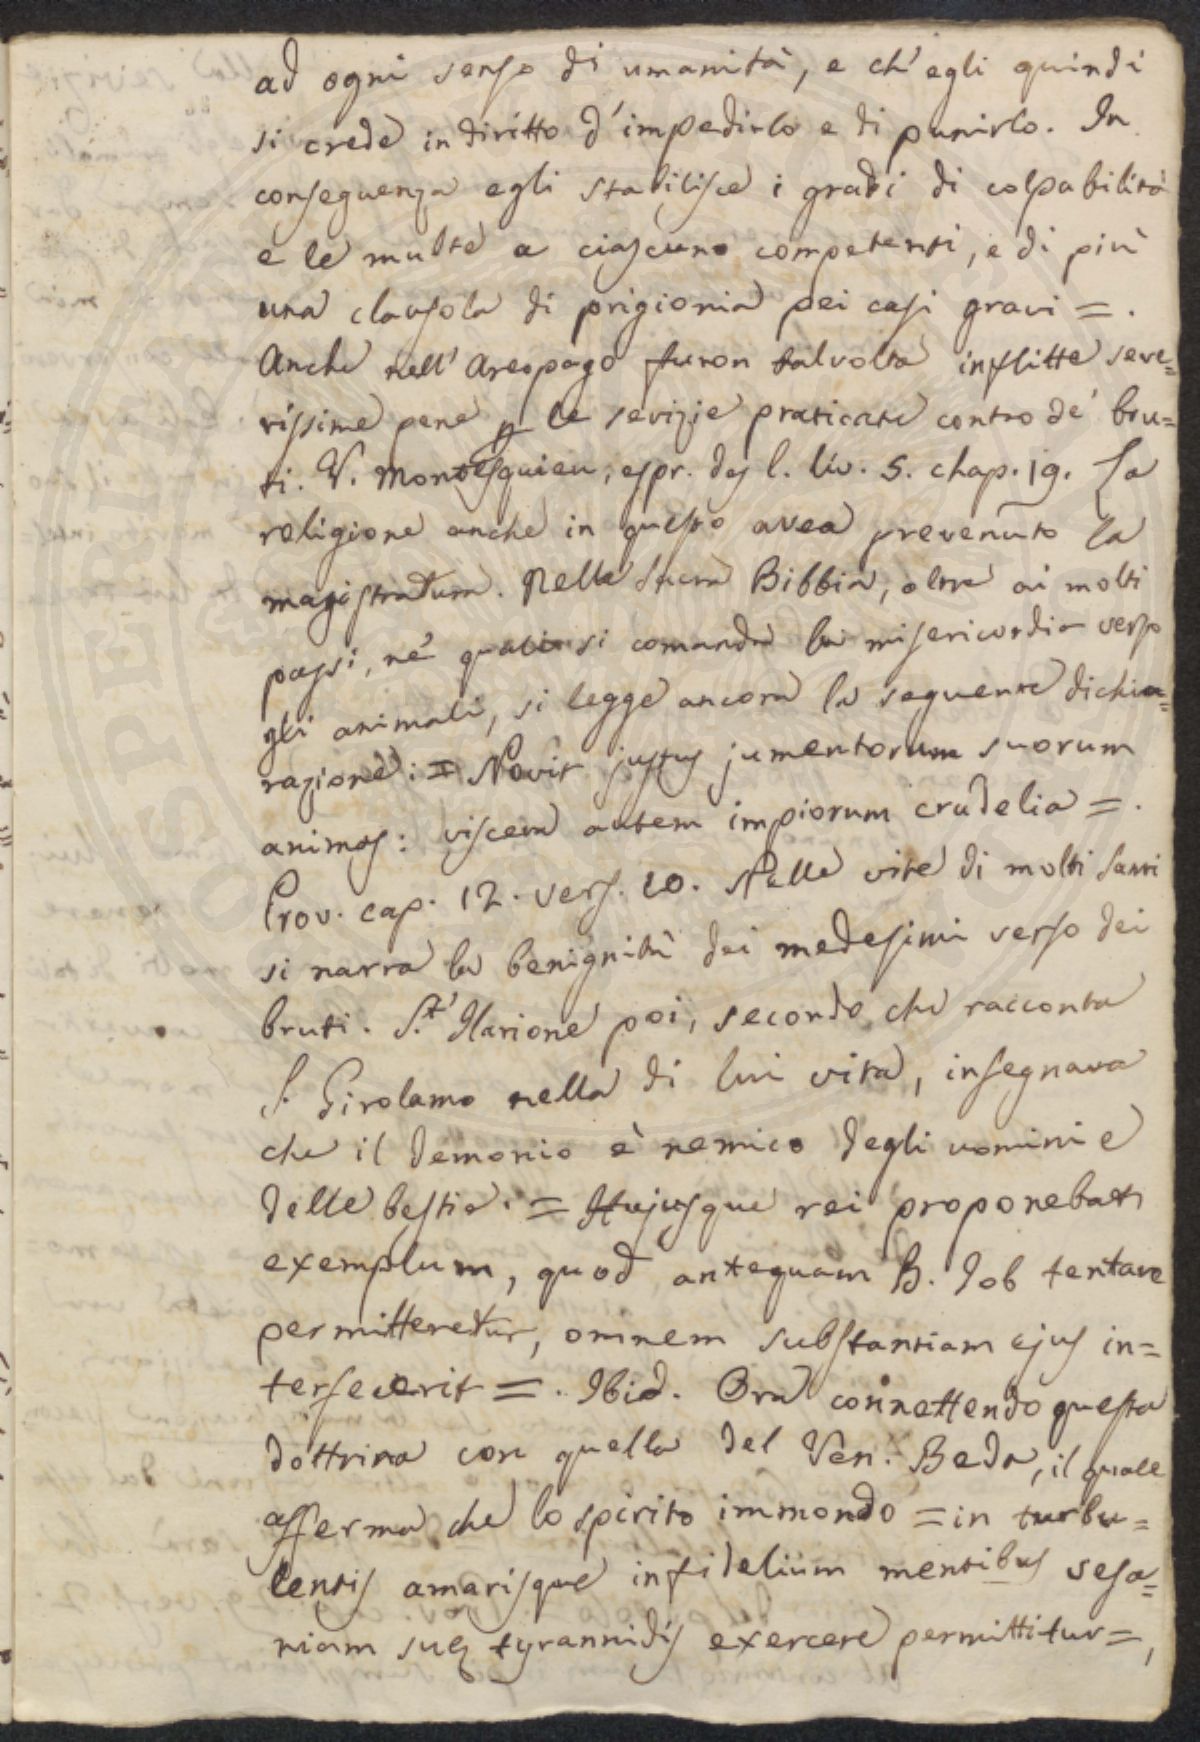 ad ogni senso di umanità, e ch'egli quindi
si crede in diritto d'impedirlo e di punirlo. In
conseguenza egli stabilisce i gradi di colpabilità
e le multe a ciascuno competenti, e di più
una clausola di prigionia pei casi gravi =.
Anche nell'Areopago furon talvolta inflitte seve=
rissime pene p le sevizie praticate contro de' bru=
ti. V. Montesquieu, espr. des l. liv. 5. chap. 19. La
religione anche in questo avea prevenuto la
magistratura. Nella Sacra Bibbia, oltre ai molti
passi, ne' quali si comanda la misericordia verso
gli animali, si legge ancora la seguente dichia=
razione: = Novit justus jumentorum suorum
animas: viscera autem impiorum crudelia =.
Prov. cap. 12. vers. 10. Nelle vite di molti Santi
si narra la benignità dei medesimi verso dei
bruti. S.t' Ilarione poi, secondo che racconta
S. Girolamo nella di lui vita, insegnava
che il demonio è nemico degli uomini e
delle bestie. = Hujusque rei proponebat
exemplum, quod antequam B. Job tentare
permitteretur, omnem substantiam ejus in=
terfecerit =. Ibid. Ora connettendo questa
dottrina con quella del Ven. Beda, il quale
afferma che lo spirito immondo = in turbu=
lentis amarisque infidelium mentibus vesa=
niam suę tyrannidis exercere permittitur =,